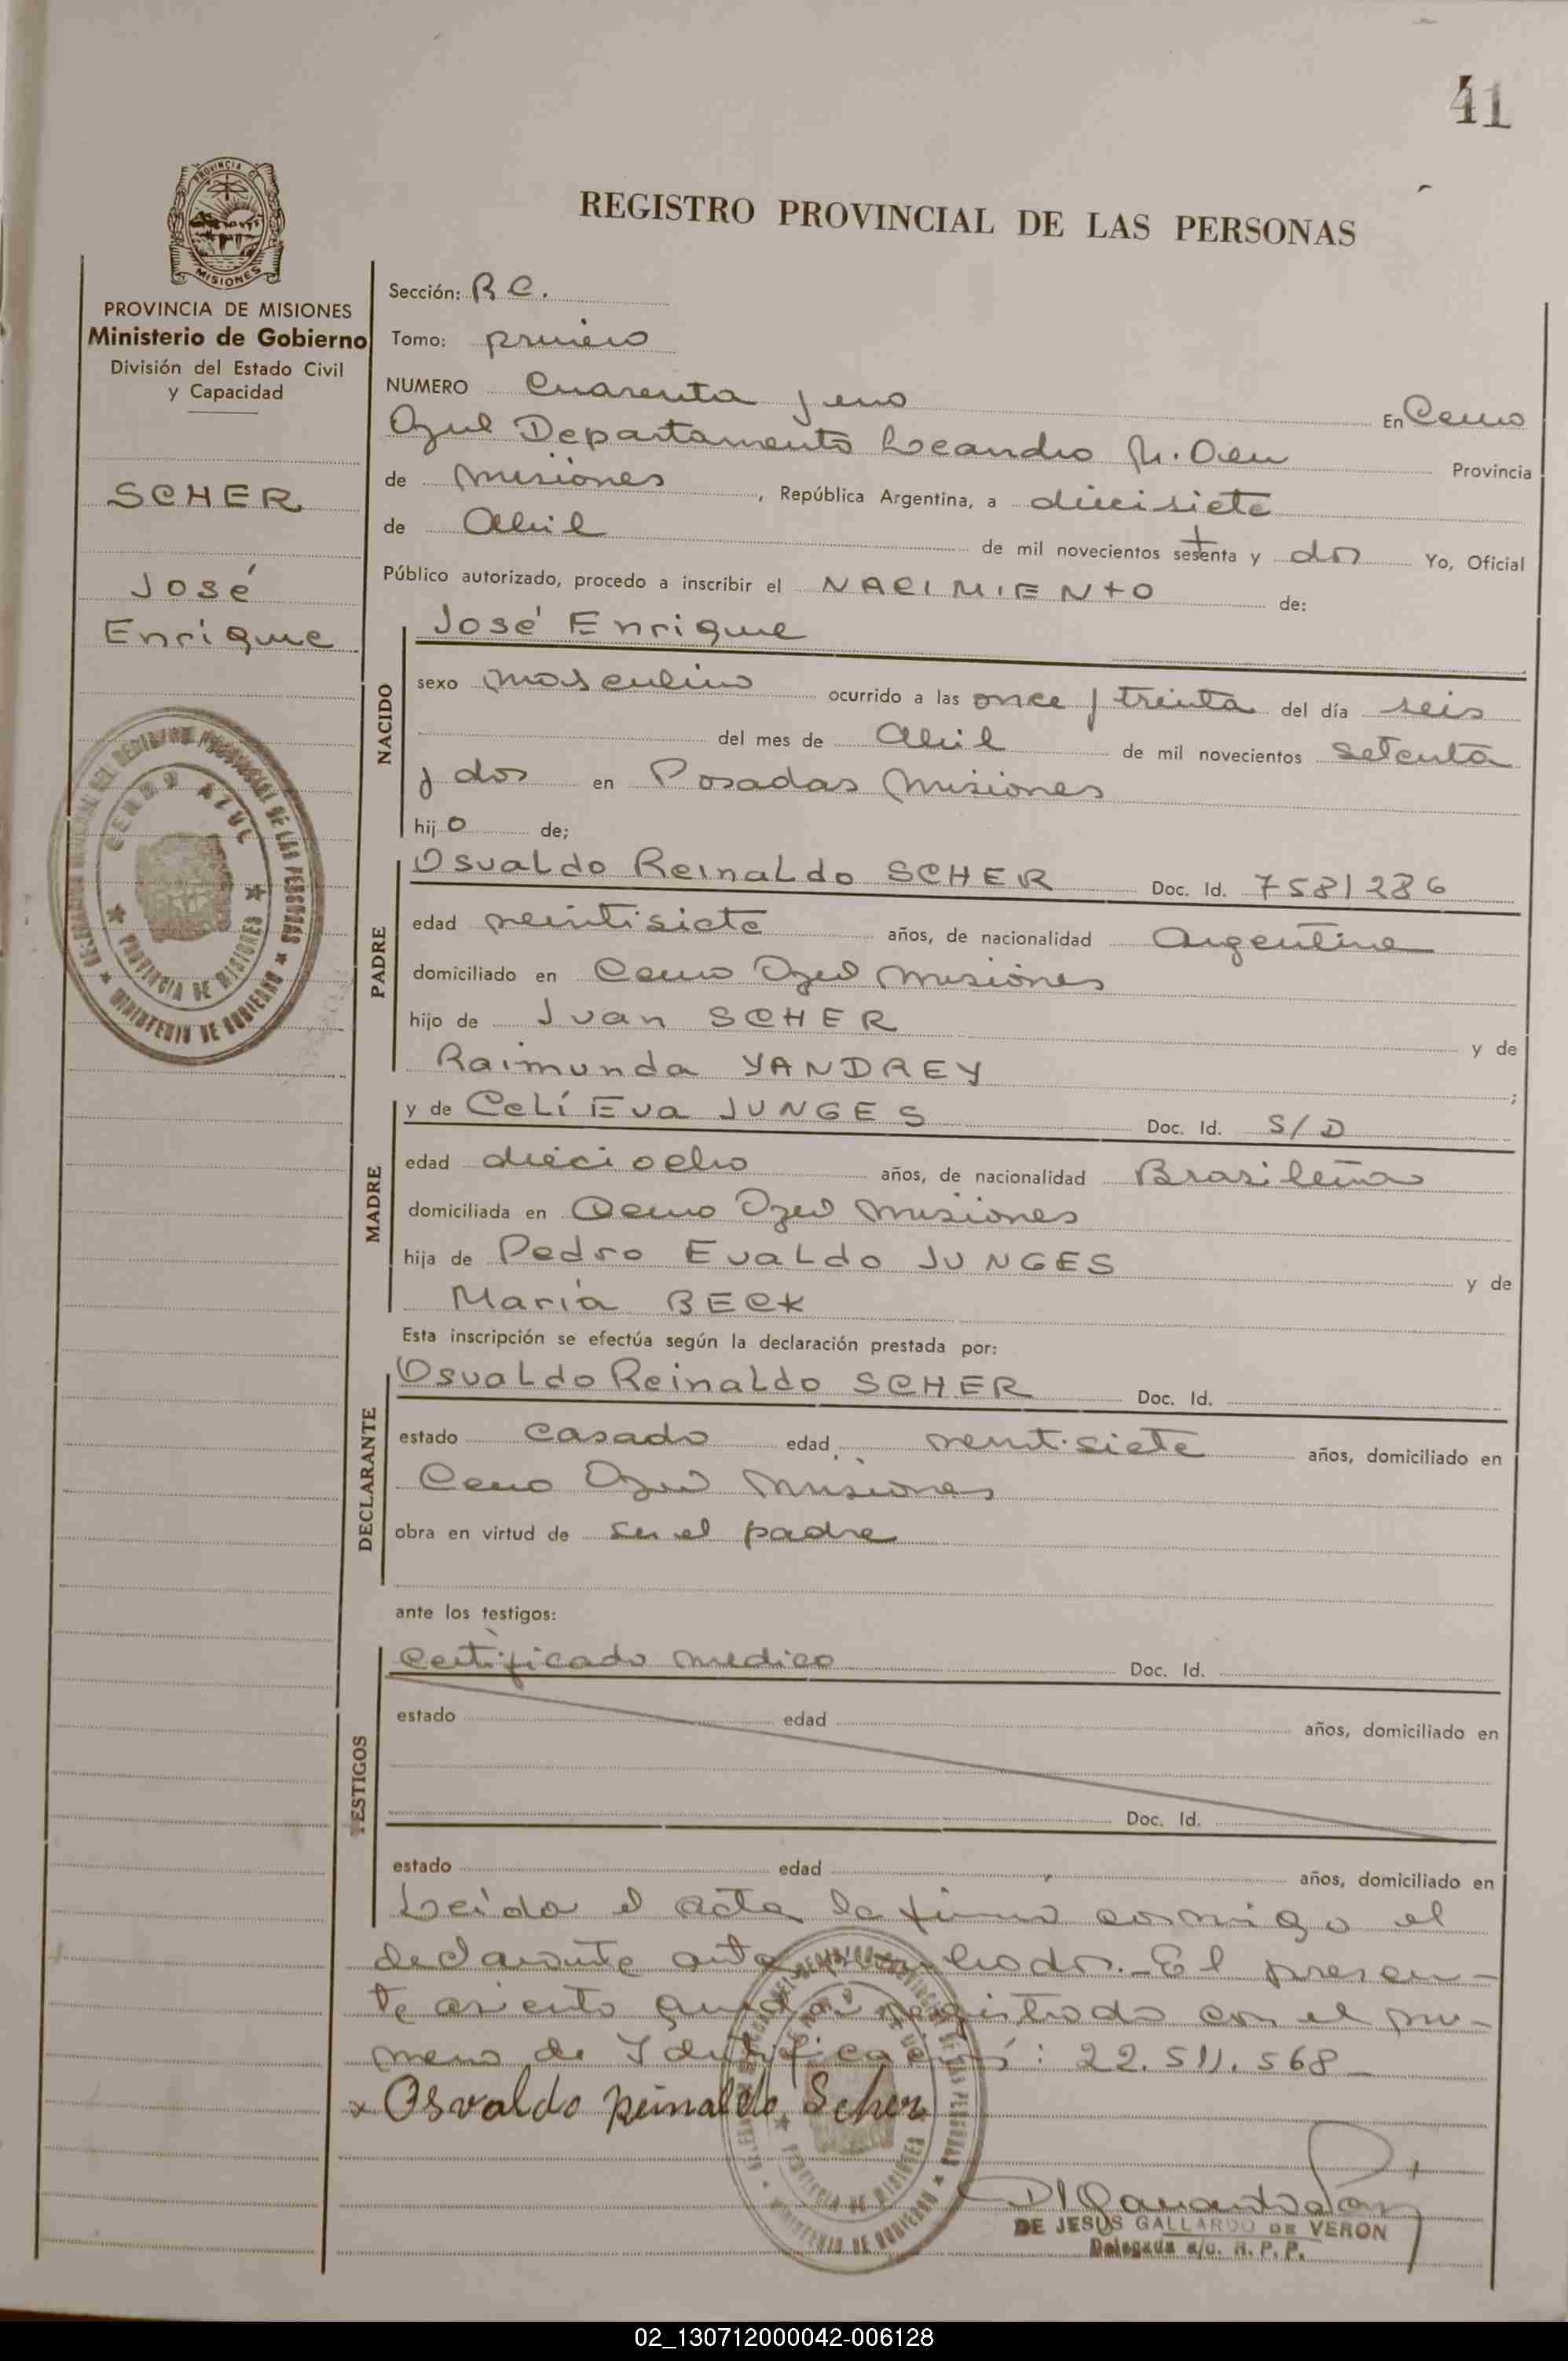 41
PROVINCIA DE
MISIONES
REGISTRO PROVINCIAL DE LAS PERSONAS
PROVINCIA DE MISIONES
Ministerio de Gobierno
División del Estado Civil
y Capacidad
SCHER
José
Enrique
DEL REGISTRO PROVINCIAL DE LAS PERSONAS
CERRO AZUL
PROVINCIA DE MISIONES
MINISTERIO DE GOBIERNO
Sección: R C.
Tomo: primero
NUMERO Cuarenta y uno En Cerro
Azul Departamento Leandro N. Alem Provincia
de Misiones, República Argentina, a diecisiete
de Abril de mil novecientos setenta y dos Yo, Oficial
Público autorizado, procedo a inscribir el NACIMIENTO de:
NACIDO
José Enrique
sexo masculino ocurrido a las once y treinta del día seis
del mes de Abril de mil novecientos setenta
y dos en Posadas Misiones
hijo de;
PADRE
Osvaldo Reinaldo SCHER Doc. Id. 7581286
edad veintisiete años, de nacionalidad Argentina
domiciliado en Cerro Azul Misiones
hijo de Juan SCHER y de
Raimunda YANDREY ;
MADRE
y de Celí Eva JUNGES Doc. Id. S/D
edad dieciocho años, de nacionalidad Brasileña
domiciliada en Cerro Azul Misiones
hija de Pedro Evaldo JUNGES y de
María BECK
Esta inscripción se efectúa según la declaración prestada por:
DECLARANTE
Osvaldo Reinaldo SCHER Doc. Id.
estado casado edad veintisiete años, domiciliado en
Cerro Azul Misiones
obra en virtud de ser el padre
ante los testigos:
TESTIGOS
Certificado medico Doc. Id.
estado edad años, domiciliado en
Doc. Id.
estado edad años, domiciliado en
Leída el acta la firma conmigo el
declarante ante nombrado.- El presen-
te asiento queda registrado con el nu-
mero de Identificación: 22.511.568-
x Osvaldo Reinaldo Scher
PROVINCIA DE MISIONES
MINISTERIO DE GOBIERNO
DE JESUS GALLARDO DE VERON
Delegada a/c. R. P. P.
02_130712000042-006128